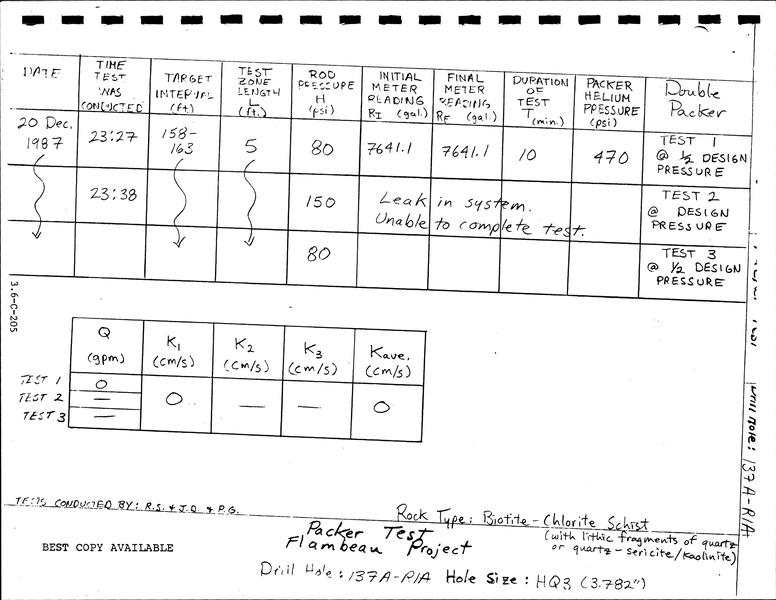 DATE
TIME TEST WAS CONDUCTED
TARGET INTERVAL (ft.)
TEST ZONE LENGTH L (ft.)
ROD PRESSURE H (psi)
INITIAL METER READING RI (gal.)
FINAL METER READING RF (gal.)
DURATION OF TEST T (min.)
PACKER HELIUM PRESSURE (psi)
Double Packer
20 Dec. 1987
23:27
158-163
5
80
7641.1
7641.1
10
470
TEST 1 @ 1/2 DESIGN PRESSURE
23:38
150
Leak in system.
Unable to complete test.
TEST 2 @ DESIGN PRESSURE
80
TEST 3 @ 1/2 DESIGN PRESSURE
3.6-C-205
Q (gpm)
K1 (cm/s)
K2 (cm/s)
K3 (cm/s)
Kave. (cm/s)
TEST 1 O
TEST 2 — O — — O
TEST 3 —
Drill Hole: 137A-R1A
TESTS CONDUCTED BY: R.S. & J.D. & P.G.
Rock Type: Biotite-Chlorite Schist
(with lithic fragments of quartz
or quartz-sericite/kaolinite)
BEST COPY AVAILABLE
Packer Test
Flambeau Project
Drill Hole: 137A-R1A Hole Size: HQ3 (3.782")